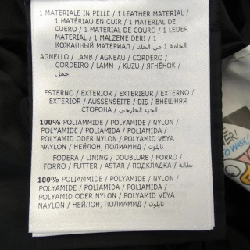 1 MATERIALE IN PELLE / 1 LEATHER MATERIAL /
1 MATÉRIAU EN CUIR / 1 MATERIAL DE
CUERO / 1 MATERIAL DE COURO / 1 LEDER
MATERIAL / 1 MALZEME DERI / 1
КОЖАННЫЙ МАТЕРИАЛ /
AGNELLO / LAMB / AGNEAU / CORDERO /
CORDEIRO / LAMM / KUZU / ЯГНЁНОК /
حمل
ESTERNO / EXTERIOR / EXTERIEUR / EXTERNO
/ EXTERIOR / AUSSENSEITE / DIŞ / ВНЕШНЯЯ
СТОРОНА /
100% POLIAMMIDE / POLYAMIDE / NYLON /
POLYAMIDE / POLIAMIDA / POLIAMIDA /
POLYAMID ODER NYLON / POLYAMID VEYA
NAYLON / НЕЙЛОН, ПОЛИАМИД /
FODERA / LINING / DOUBLURE / FORRO /
FORRO / FUTTER / ASTAR / ПОДКЛАДКА /
100% POLIAMMIDE / POLYAMIDE / NYLON /
POLYAMIDE / POLIAMIDA / POLIAMIDA /
POLYAMID ODER NYLON / POLYAMID VEYA
NAYLON / НЕЙЛОН, ПОЛИАМИД /